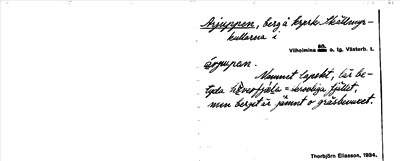 Arjuppen, berg å kzrk Skällmyr-
kullarna i
Vilhelmina sn. o. lg. Västerb. l.
årpupen.
Namnet lapskt, lär be-
tyda = skrovliga fjället,
men berget är jämnt o gräsbevuxet.
Thorbjörn Eliasson, 1934.